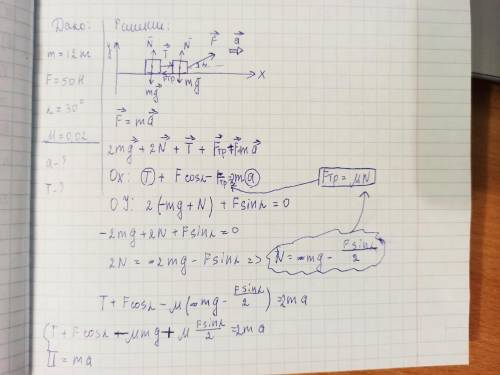 Дано:
Решение:
m = 12 кг
F = 50 Н
α = 30°
μ = 0,02
a - ?
T - ?
y
N T N F a
Fтр
mg mg
X
F = ma
2mg + 2N + T + Fтр + F = ma
Ox: T + Fcosα - Fтр = 2ma
Fтр = μN
OY: 2(-mg + N) + Fsinα = 0
-2mg + 2N + Fsinα = 0
2N = 2mg - Fsinα => N = mg - Fsinα/2
T + Fcosα - μ(mg - Fsinα/2) = 2ma
{ T + Fcosα - μmg + μ Fsinα/2 = 2ma
T = ma